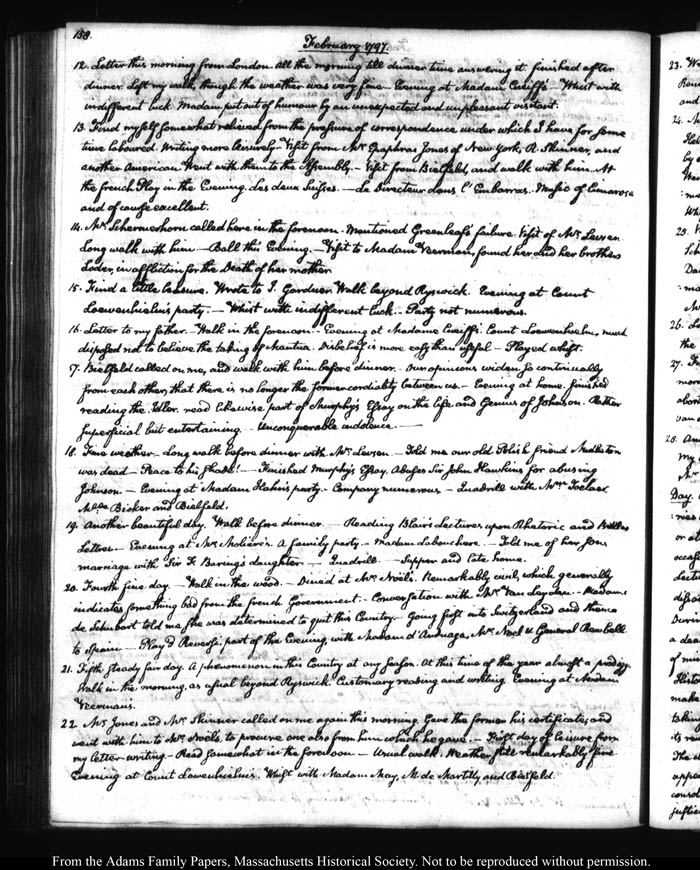 158.
February 1797.
12. Letter this morning from London. All the morning till dinner time answering it. finished after
dinner. Left my walk, though the weather was very fine — Evening at Madam — Whist with
indifferent luck. Madam put out of humour by an unexpected and unpleasant visitant.
13. Find myself somewhat relieved from the pressure of correspondence under which I have for some
time laboured. Writing more leisurely — Visit from Mr. Jones of New York, R. Skinner, and
another American Went with them to the Assembly. — Visit from Bielfeld, and walk with him. At
the french Play in the Evening. Les deux Suisses. — Le Directeur dans l'Embarras. Music of Cimarosa
and of course excellent.
14. Mr. Schermerhorn called here in the forenoon. Mentioned Greenleaf's failure. Visit of Mr. Levsen
Long walk with him — Ball this Evening. — Visit to Madam Veerman, found her and her brother
in affliction for the Death of her mother
15. Find a little leisure. Wrote to J. Gardner Walk beyond Ryswick. Evening at Count
Loewenhielm's party. — Whist with indifferent luck. — Party not numerous.
16. Letter to my father — Walk in the forenoon. — Evening at Madame Count Loewenhielm, much
disposed not to believe the taking of Mantua. Disbelief is more easy than useful — Played whist.
17. Bielfeld called on me, and walk with him before dinner. our opinions widen so continually
from each other, that there is no longer the former cordiality between us. — Evening at home. finished
reading the Idler. read likewise part of Murphy's Essay on the life and Genius of Johnson. Rather
superficial but entertaining. — Unconquerable indolence. —
18. Fine weather — Long walk before dinner with Mr. Levsen — Told me our old Polish friend
was dead — Peace to his shade! — Finished Murphy's Essay. Abuses Sir John Hawkins for abusing
Johnson. — Evening at Madam Hahn's party. Company numerous — Quadrill with
Mlle Bicker and Bielfeld.
19. Another beautiful day. Walk before dinner. — Reading Blair's Lectures upon Rhetoric and Belles
Lettres — Evening at Mr. Moliere's. A family party — Madam Labouchere — Told me of her son's
marriage with Sir F. Baring's daughter — Quadrill — Supper and late home.
20. Fourth fine day — Walk in the wood. — Dined at Mr. Noël's. Remarkably civil, which generally
indicates something bad from the french Government. Conversation with Mr. Van Leyden — Madame
de Schubart told me, she was determined to quit this Country. Going first into Switzerland and thence
to Spain — Play'd Reversi, part of the Evening with Madam d'Anduaga, Mr. Noel & General
21. Fifth steady fair day. A phenomenon in this Country at any season. At this time of the year almost a prodigy.
Walk in the morning, as usual beyond Ryswick. Customary reading and writing. Evening at Madam
Veerman's.
22. Mr. Jones and Mr. Skinner called on me again this morning. Gave the former his certificate, and
went with him to Mr. Noël's, to procure one also from him which he gave. — First day of leisure from
my letter-writing — Read somewhat in the forenoon — Usual walk. Weather still remarkably fine
Evening at Count Löwenhielm's. Whist with Madam May, M. de Martilly and Bielfeld.
From the Adams Family Papers, Massachusetts Historical Society. Not to be reproduced without permission.